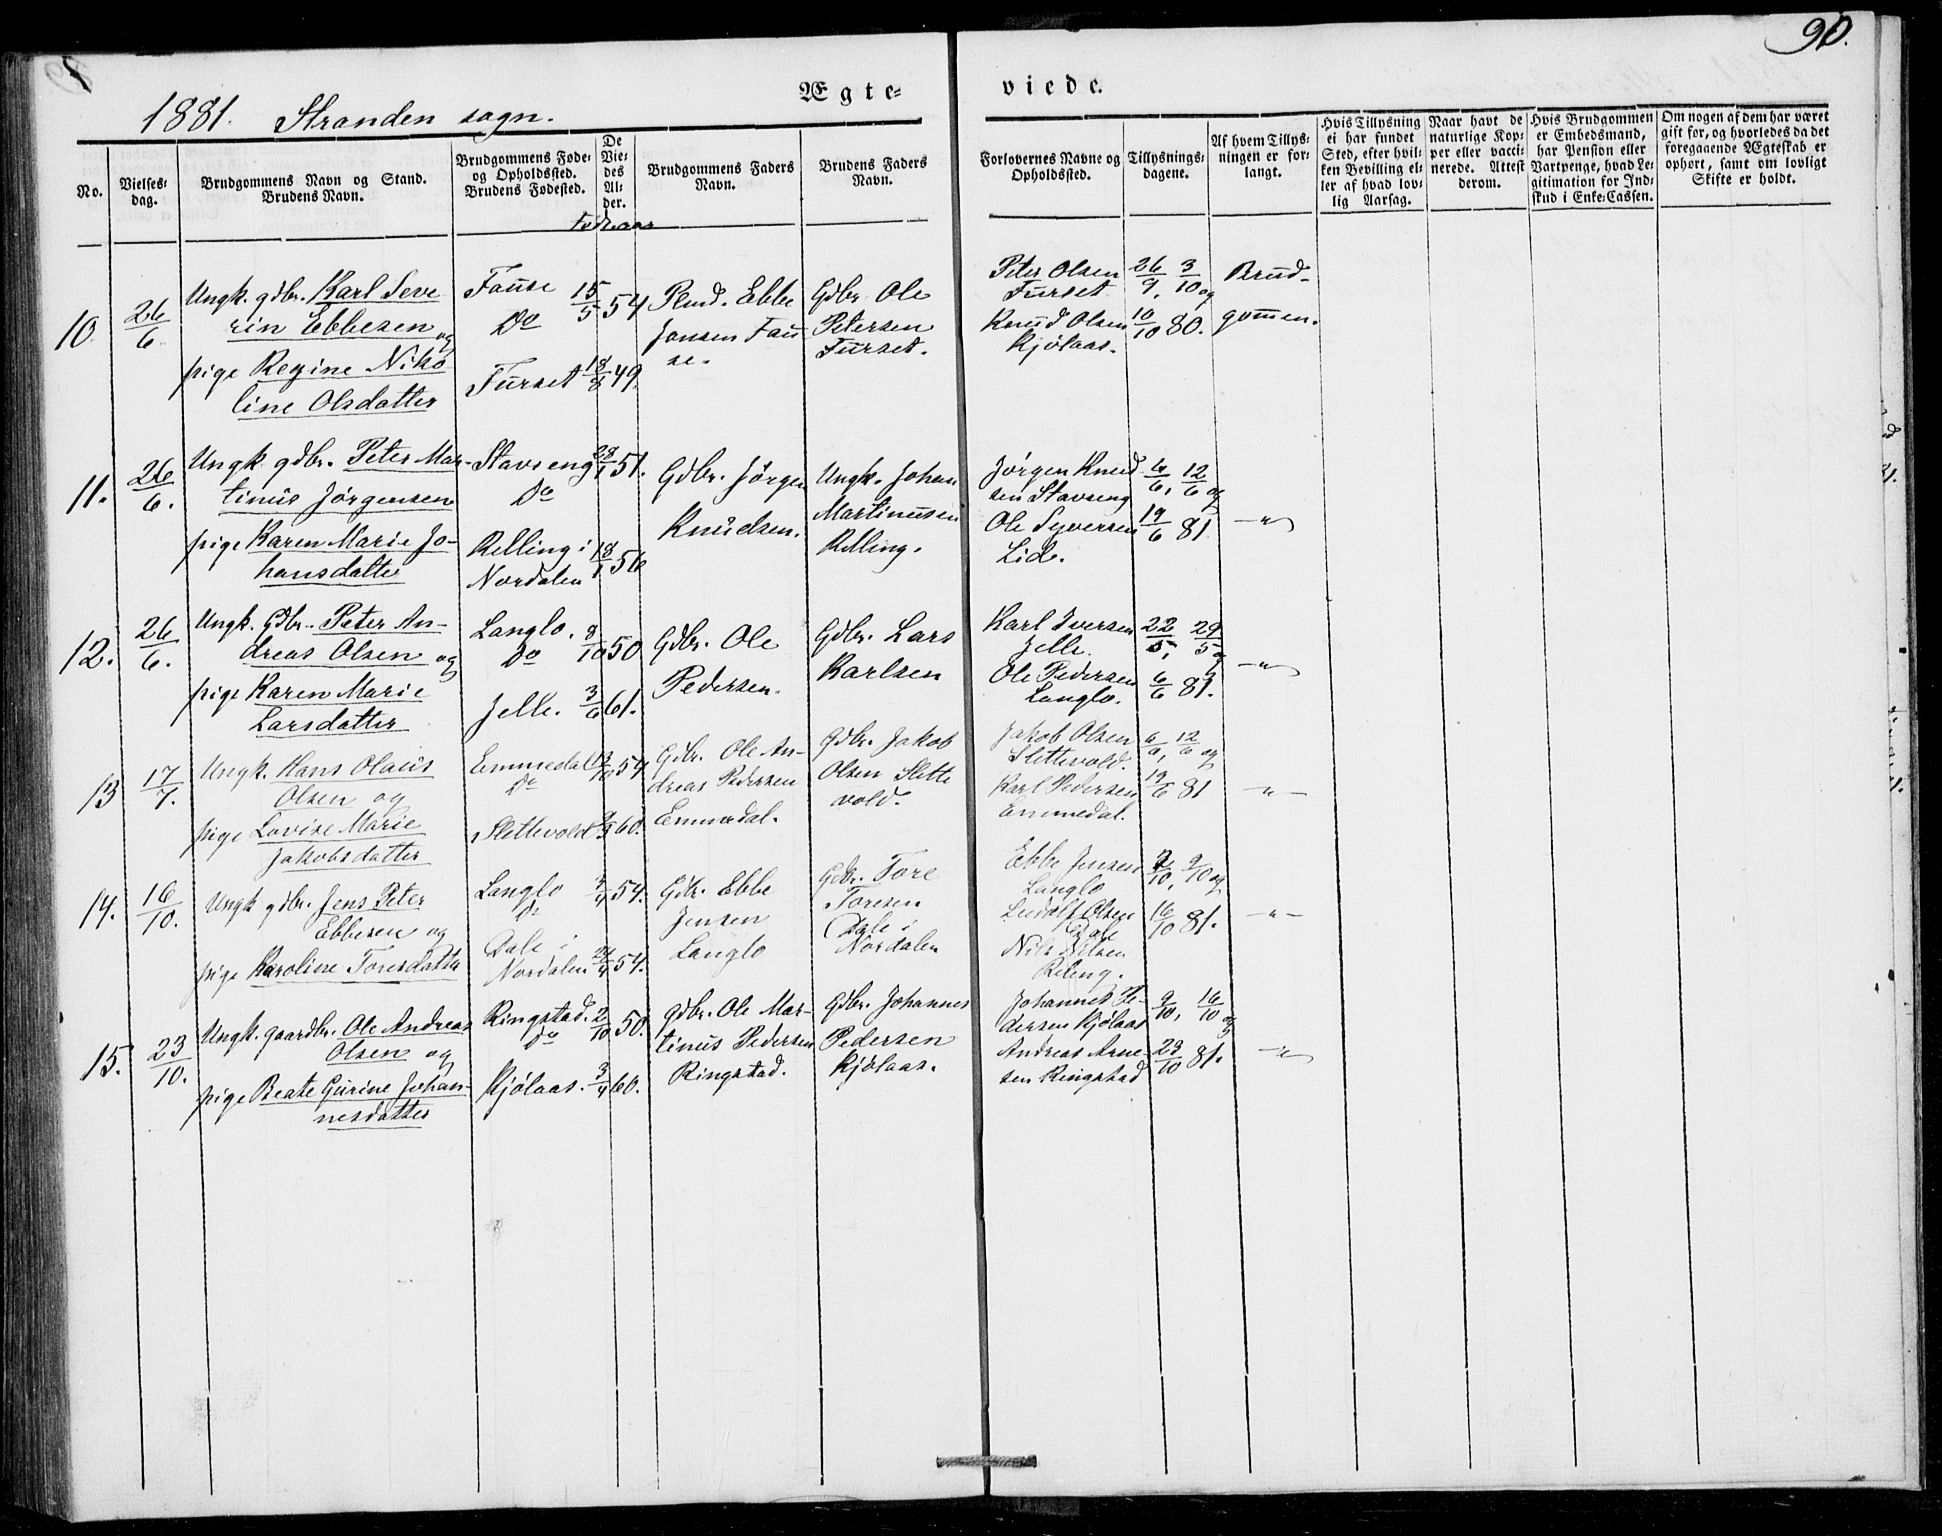 90.
Ægte=
viede.
1881. Stranden sogn.
No.
Vielses=
dag.
Brudgommens Navn og Stand.
Brudens Navn.
Brudgommens Føde=
og Opholdssted.
Brudens Fødested.
De
Vie=
des
Al=
der.
Fødeaar
Brudgommens Faders
Navn.
Brudens Faders
Navn.
Forlovernes Navne og
Opholdssted.
Tillysnings=
dagene.
Af hvem Tillys=
ningen er for=
langt.
Hvis Tillysning
ei har fundet
Sted, efter hvil=
ken Bevilling el=
ler af hvad lov=
lig Aarsag.
Naar havt de
naturlige Kop=
per eller vacci=
nerede. Attest
derom.
Hvis Brudgommen
er Embedsmand,
har Pension eller
Vartpenge, hvad Le=
gitimation for Ind=
skud i Enke=Cassen.
Om nogen af dem har været
gift før, og hvorledes da det
foregaaende Ægteskab er
ophørt, samt om lovligt
Skifte er holdt.
10
26/6.
Ungk. gdbr. Karl Seve
rin Ebbesen og
pige Regine Niko
line Olsdatter
Fause 15/5 54
Do
Furset 18/8 49.
Ebbe
Jensen Fau
se.
Gdbr. Ole
Petersen
Furset.
Peter Olsen
Furset
Knud Olsen
Kjølaas.
26/9, 3/10 og
10/10 80.
Brud-
gommen.
11.
26/6.
Ungk. gdbr. Peter Mar-
tinus Jørgensen
pige Karen Marie Jo-
hansdatter
Stavseng 28/1 51.
Do
Relling i
Nordalen 18/1 56
Gdbr. Jørgen
Knudsen.
Ungk. Johan
Martinusen
Relling.
Jørgen Knud
sen Stavseng
Ole Syversen
Lid.
6/6, 12/6 og
19/6 81
-"-
12.
26/6.
Ungk. Gdbr. Peter An-
dreas Olsen og
pige Karen Marie
Larsdatter
Langlo. 8/10 50
Do
Jelle. 3/6 61.
Gdbr. Ole
Pedersen.
Gdbr. Lars
Karlsen
Karl Iversen
Jelle.
Ole Pedersen
Langlo.
22/5, 29/5 og
6/6 81.
-"-
13
17/7.
Ungk. Hans Olaus
Olsen og
pige Lovise Marie
Jakobsdatter
Emmedal 54
Do
Slettevold 60.
Gdbr. Ole An-
dreas Pedersen
Emmedal.
Gdbr. Jakob
Olsen Slette
vold.
Jakob Olsen
Slettevold.
Karl Pedersen
Emmedal.
6/6, 12/6 og
19/6 81
-"-
14.
16/10.
Ungk gdbr. Jens Peter
Ebbesen og
pige Karoline Toresdatter
Langlo 3/4 54.
Do
Dale i
Nordalen 24/4 54.
Gdbr. Ebbe
Jensen
Langlo
Gdbr. Tore
Toresen
Dale i
Nordalen
Ebbe Jensen
Langlo
Ludolf Olsen
Dale
Nils Nilsen
Reling.
2/10, 9/10 og
16/10 81.
-"-
15.
23/10.
Ungk. gaardbr. Ole Andreas
Olsen og
pige Beate Gurine Johan-
nesdatter
Ringstad. 2/10 50.
Do
Kjølaas. 3/4 60.
gdbr. Ole Mar-
tinus Pedersen
Ringstad.
Gdbr. Johannes
Pedersen
Kjølaas.
Johannes Pe-
dersen Kjølaas
Andreas Arne-
sen Ringstad
9/10, 16/10 og
23/10 81.
-"-